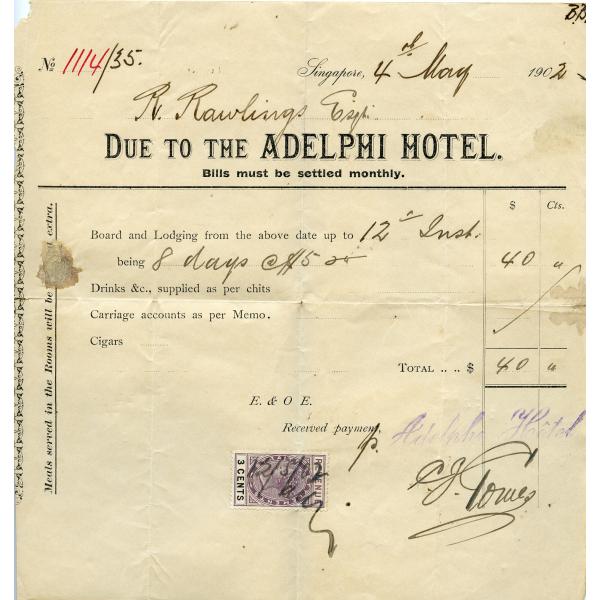 B.B.
No 1114/35.
Singapore, 4th May 1902
R. Rawlings Esqr.
DUE TO THE ADELPHI HOTEL.
Bills must be settled monthly.
$ Cts.
Board and Lodging from the above date up to 12th Inst.
being 8 days @ $5 00 40 "
Drinks &c., supplied as per chits
Carriage accounts as per Memo.
Cigars
TOTAL .. .. $ 40 "
E. & O E.
Received payment,
p. Adelphi Hotel
3 CENTS REVENUE
Meals served in the Rooms will be extra.